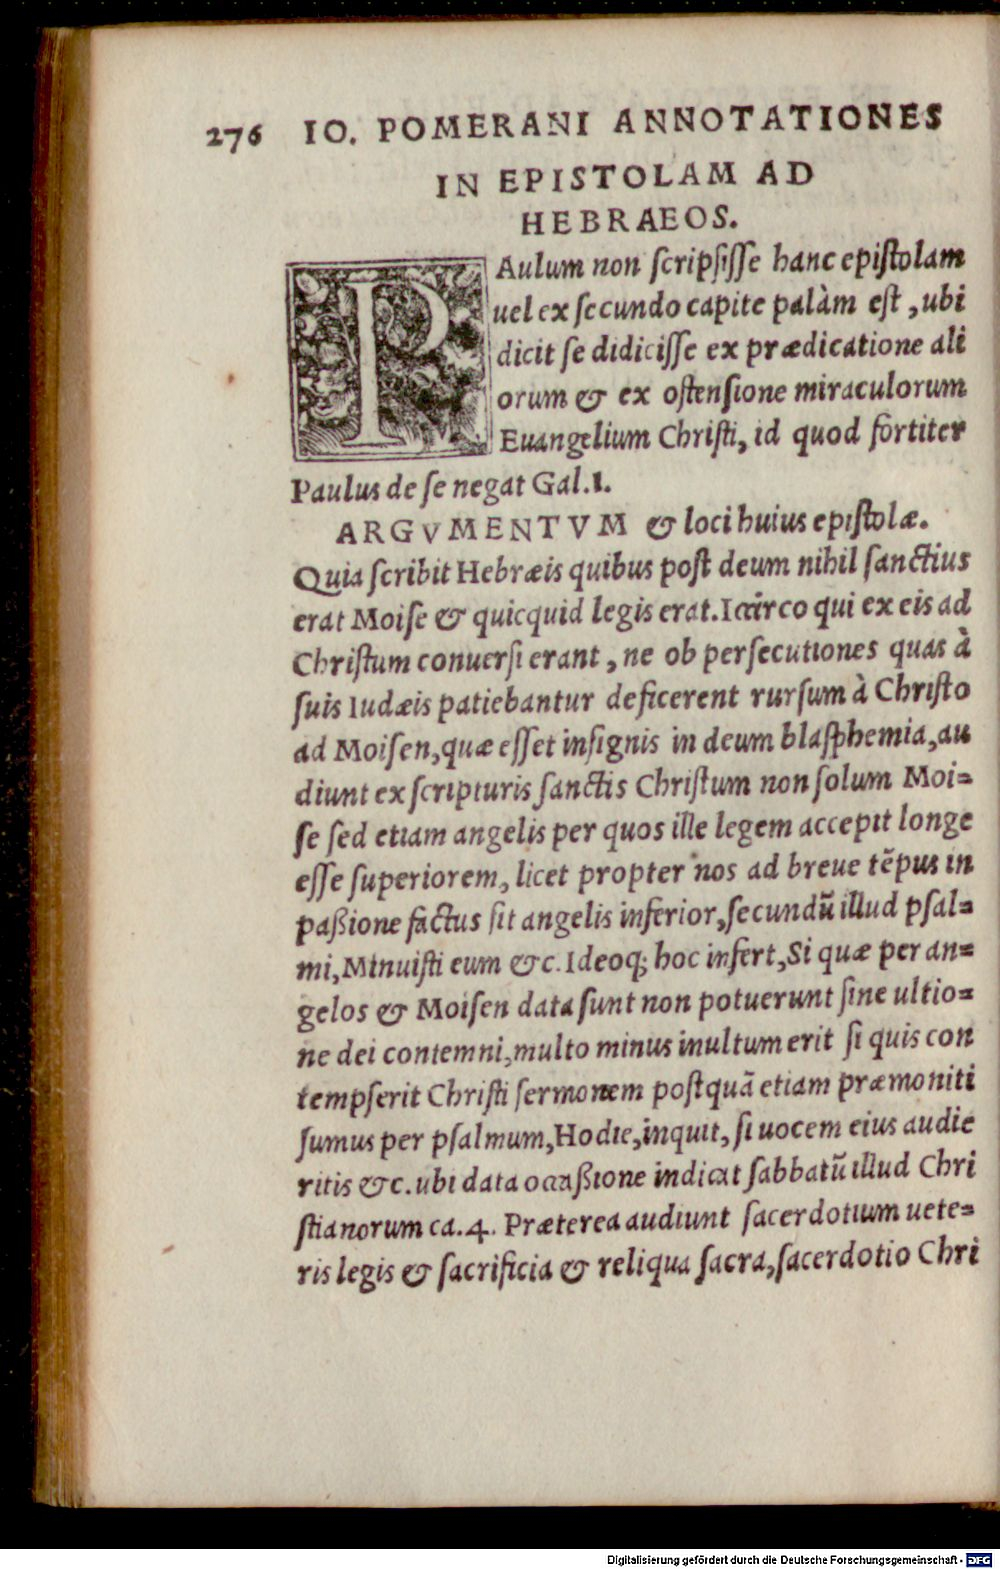 276 IO. POMERANI ANNOTATIONES
IN EPISTOLAM AD
HEBRAEOS.
PAulum non ſcripſiſſe hanc epiſtolam
uel ex ſecundo capite palàm eſt, ubi
dicit ſe didiciſſe ex prædicatione ali
orum & ex oſtenſione miraculorum
Euangelium Chriſti, id quod fortiter
Paulus de ſe negat Gal.1.
ARGVMENTVM & loci huius epiſtolæ.
Quia ſcribit Hebræis quibus poſt deum nihil ſanctius
erat Moiſe & quicquid legis erat. Icircо qui ex eis ad
Chriſtum conuerſi erant, ne ob perſecutiones quas à
ſuis Iudæis patiebantur deficerent rurſum à Chriſto
ad Moiſen, quæ eſſet inſignis in deum blaſphemia, au
diunt ex ſcripturis ſanctis Chriſtum non ſolum Moi=
ſe ſed etiam angelis per quos ille legem accepit longe
eſſe ſuperiorem, licet propter nos ad breue tẽpus in
paßione factus ſit angelis inferior, ſecundũ illud pſal=
mi, Minuiſti eum &c. Ideoq; hoc infert, Si quæ per an=
gelos & Moiſen data ſunt non potuerunt ſine ultio=
ne dei contemni, multo minus inultum erit ſi quis con
tempſerit Chriſti ſermonem poſtquã etiam præmoniti
ſumus per pſalmum, Hodie, inquit, ſi uocem eius audie
ritis &c. ubi data occaßione indicat ſabbatũ illud Chri
ſtianorum ca.4. Præterea audiunt ſacerdotium uete=
ris legis & ſacrificia & reliqua ſacra, ſacerdotio Chri
Digitalisierung gefördert durch die Deutsche Forschungsgemeinschaft - DFG